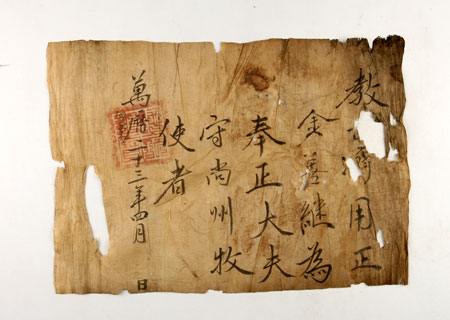 教 濟用正
金善継為
奉正大夫
守尚州牧
使者
萬曆二十三年四月 日